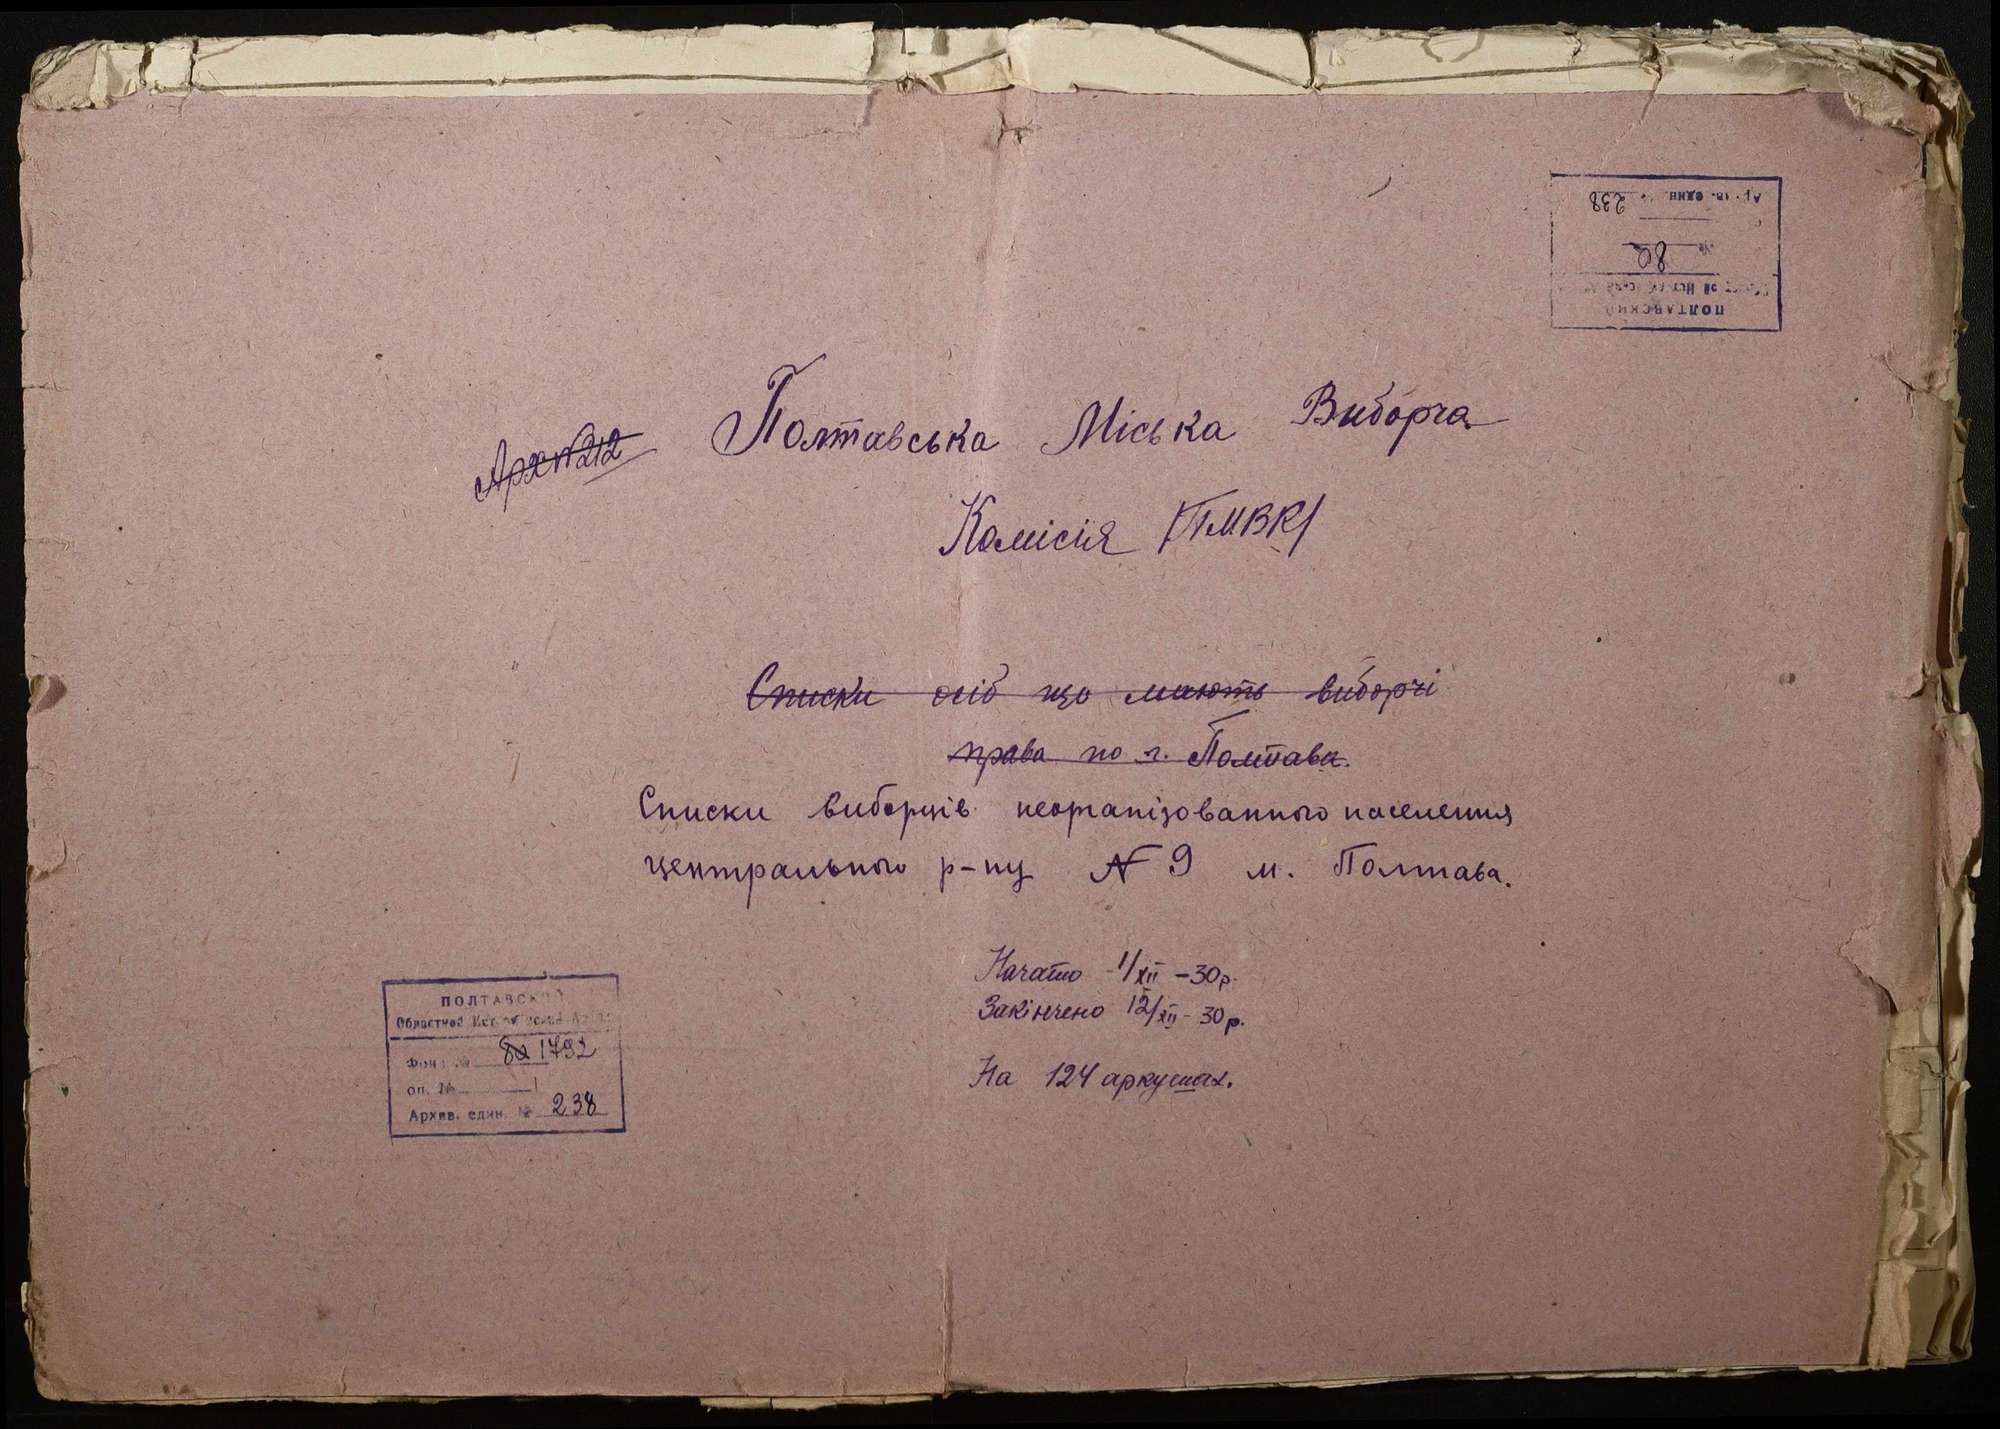 Арх №212
Полтавська Міська Виборча
Комісія /ПМВК/
Списки осіб що мають виборчі
права по г. Полтава.
Списки виборців неорганізованного населення
центрального р-ну № 9 м. Полтава.
Начато 1/XII - 30 р.
Закінчено 12/XII - 30 р.
На 124 аркушах.
ПОЛТАВСКИЙ
Областной Исторический Архив
Фонд № 80 1792
оп. № 1
Архив. един. № 238
ПОЛТАВСКИЙ
№ 80
Архив. един. № 238